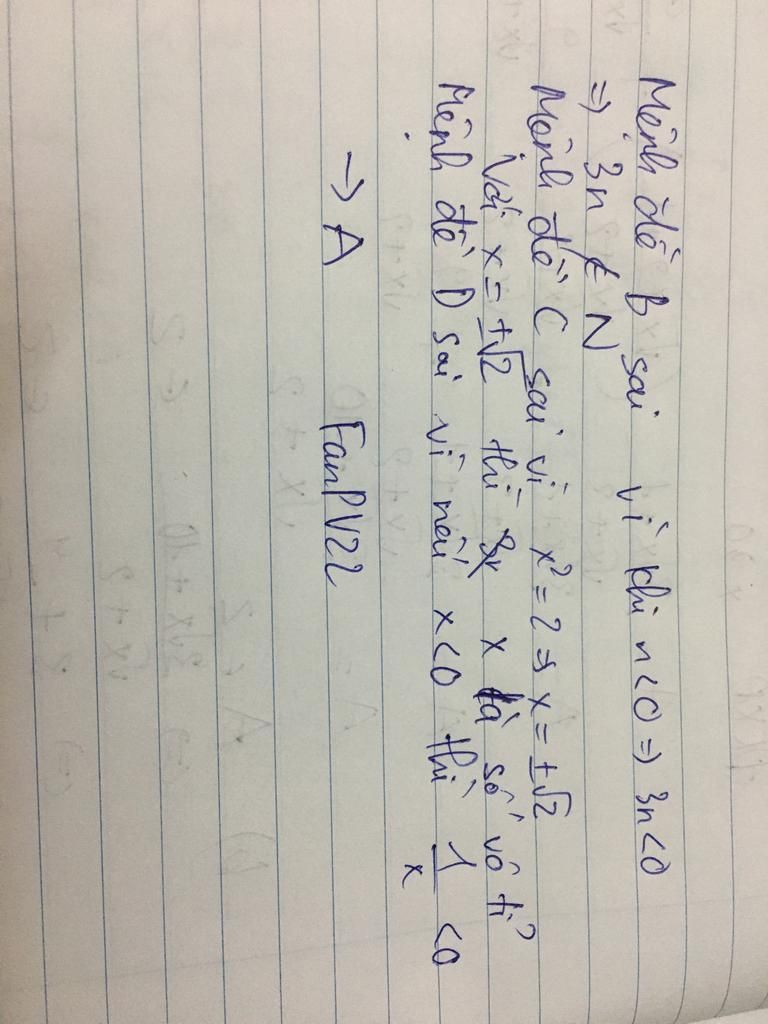 Mệnh đề B sai vì khi n<0 => 3n<0
=> 3n ∉ N
Mệnh đề C sai vì x² = 2 => x = ±√2
Với x = ±√2 thì x là số vô tỉ
Mệnh đề D sai vì nếu x<0 thì 1/x <0
→ A FanPV22